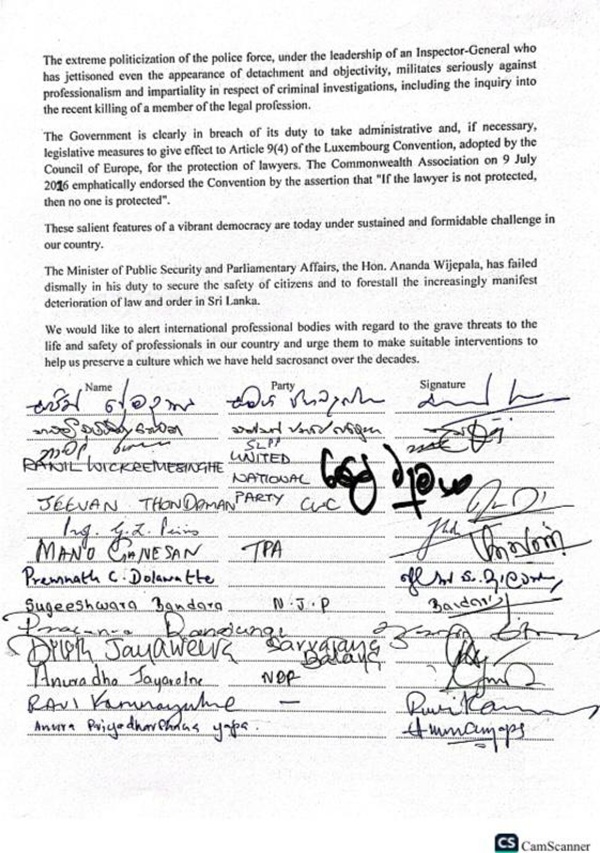 The extreme politicization of the police force, under the leadership of an Inspector-General who
has jettisoned even the appearance of detachment and objectivity, militates seriously against
professionalism and impartiality in respect of criminal investigations, including the inquiry into
the recent killing of a member of the legal profession.
The Government is clearly in breach of its duty to take administrative and, if necessary,
legislative measures to give effect to Article 9(4) of the Luxembourg Convention, adopted by the
Council of Europe, for the protection of lawyers. The Commonwealth Association on 9 July
2016 emphatically endorsed the Convention by the assertion that "If the lawyer is not protected,
then no one is protected".
These salient features of a vibrant democracy are today under sustained and formidable challenge in
our country.
The Minister of Public Security and Parliamentary Affairs, the Hon. Ananda Wijepala, has failed
dismally in his duty to secure the safety of citizens and to forestall the increasingly manifest
deterioration of law and order in Sri Lanka.
We would like to alert international professional bodies with regard to the grave threats to the
life and safety of professionals in our country and urge them to make suitable interventions to
help us preserve a culture which we have held sacrosanct over the decades.
Name Party Signature
SLPP
RANIL WICKREMESINGHE UNITED
NATIONAL
JEEVAN THONDAMAN PARTY CWC
MANO GANESAN TPA
Premnath C. Dolawatte
Sugeeshwara Bandara N.J.P Bandara
Dilith Jayaweera Sarvajana
Balaya
Anuradha Jayaratne NDF
RAVI Karunanayake —
Anura Priyadharshana yapa.
CS CamScanner